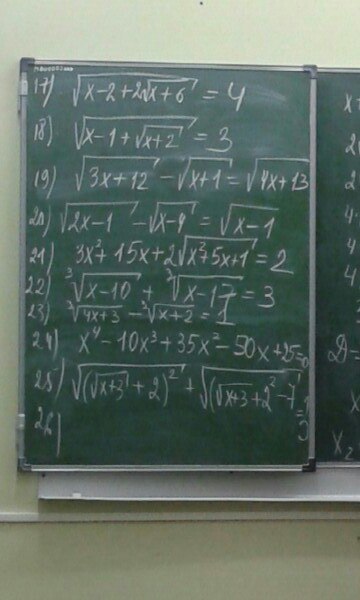 17) √(x-2+2√(x+6)) = 4
18) √(x-1+√(x+2)) = 3
19) √(3x+12) - √(x+1) = √(4x+13)
20) √(2x-1) - √(x-4) = √(x-1)
21) 3x²+15x+2√(x²+5x+1) = 2
22) ³√(x-10) + ³√(x-17) = 3
23) ³√(4x+3) - ³√(x+2) = 1
24) x⁴-10x³+35x²-50x+25=0
25) √((√(x+3)+2)²) +
26)